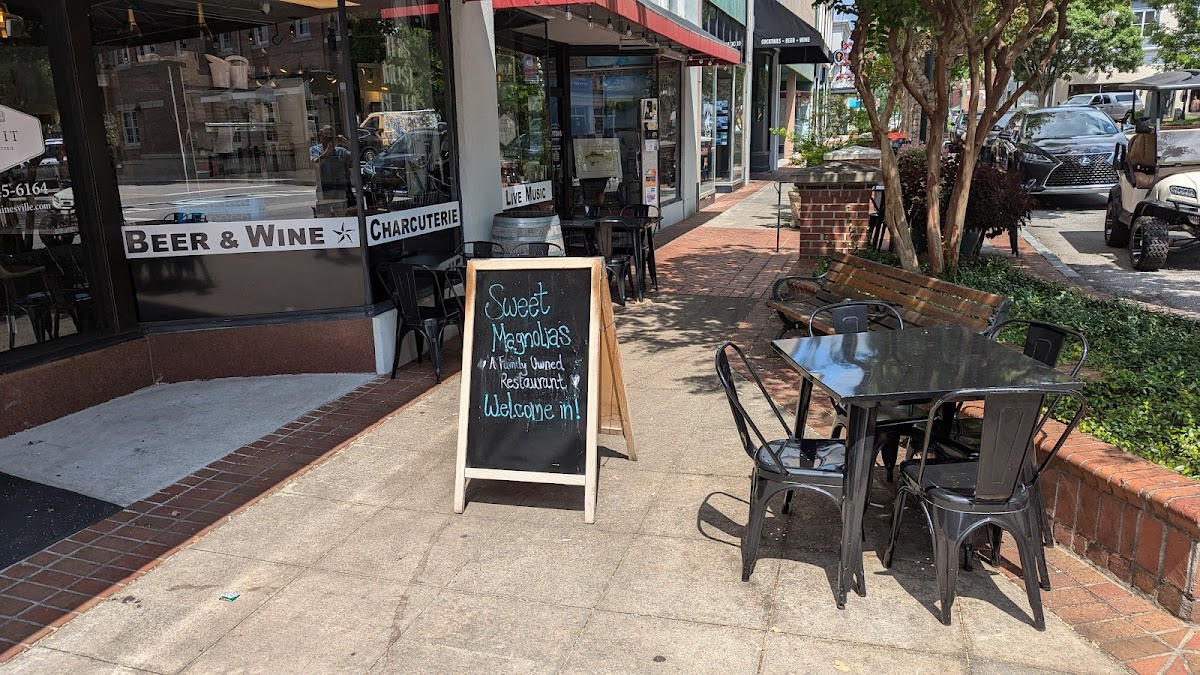 IT
5-6164
inesville.com
BEER & WINE
CHARCUTERIE
LIVE MUSIC
COCKTAILS • BEER • WINE
Sweet
Magnolias
A Family Owned
Restaurant
Welcome in!